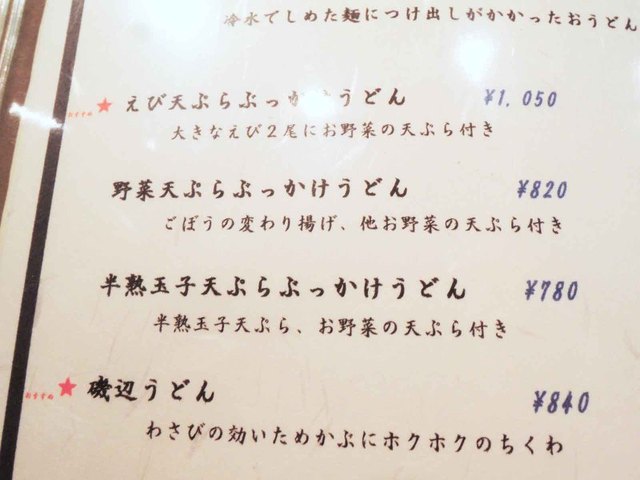 冷水でしめた麺につけ出しがかかったおうどん
おすすめ ★ えび天ぷらぶっかけうどん ¥1,050
大きなえび2尾にお野菜の天ぷら付き
野菜天ぷらぶっかけうどん ¥820
ごぼうの変わり揚げ、他お野菜の天ぷら付き
半熟玉子天ぷらぶっかけうどん ¥780
半熟玉子天ぷら、お野菜の天ぷら付き
おすすめ ★ 磯辺うどん ¥840
わさびの効いためかぶにホクホクのちくわ